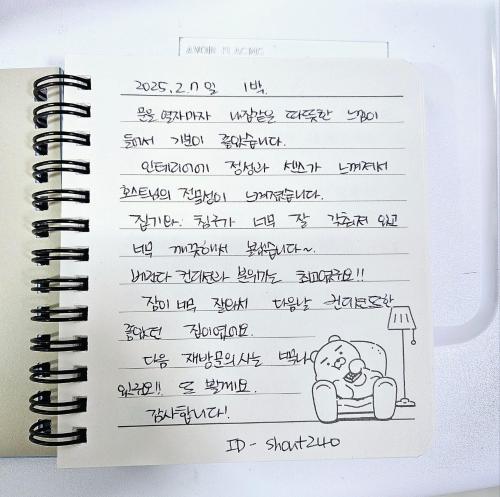 AVOID PLACING
2025.2.7일 1박.
문을 열자마자 내집같은 따뜻한 느낌이
들어서 기분이 좋았습니다.
인테리어에 정성과 센스가 느껴져서
호스트님의 전문성이 느껴졌습니다.
집기와. 침구가 너무 잘 갖춰져 있고
너무 깨끗해서 놀랬습니다~
컨디션과 분위기는 최고였구요!!
잠이 너무 잘와서 다음날 컨디션또한
좋았던 집이였어요.
다음 재방문의사는 너무나
있구요!! 또 뵐게요.
감사합니다!
ID - shout240